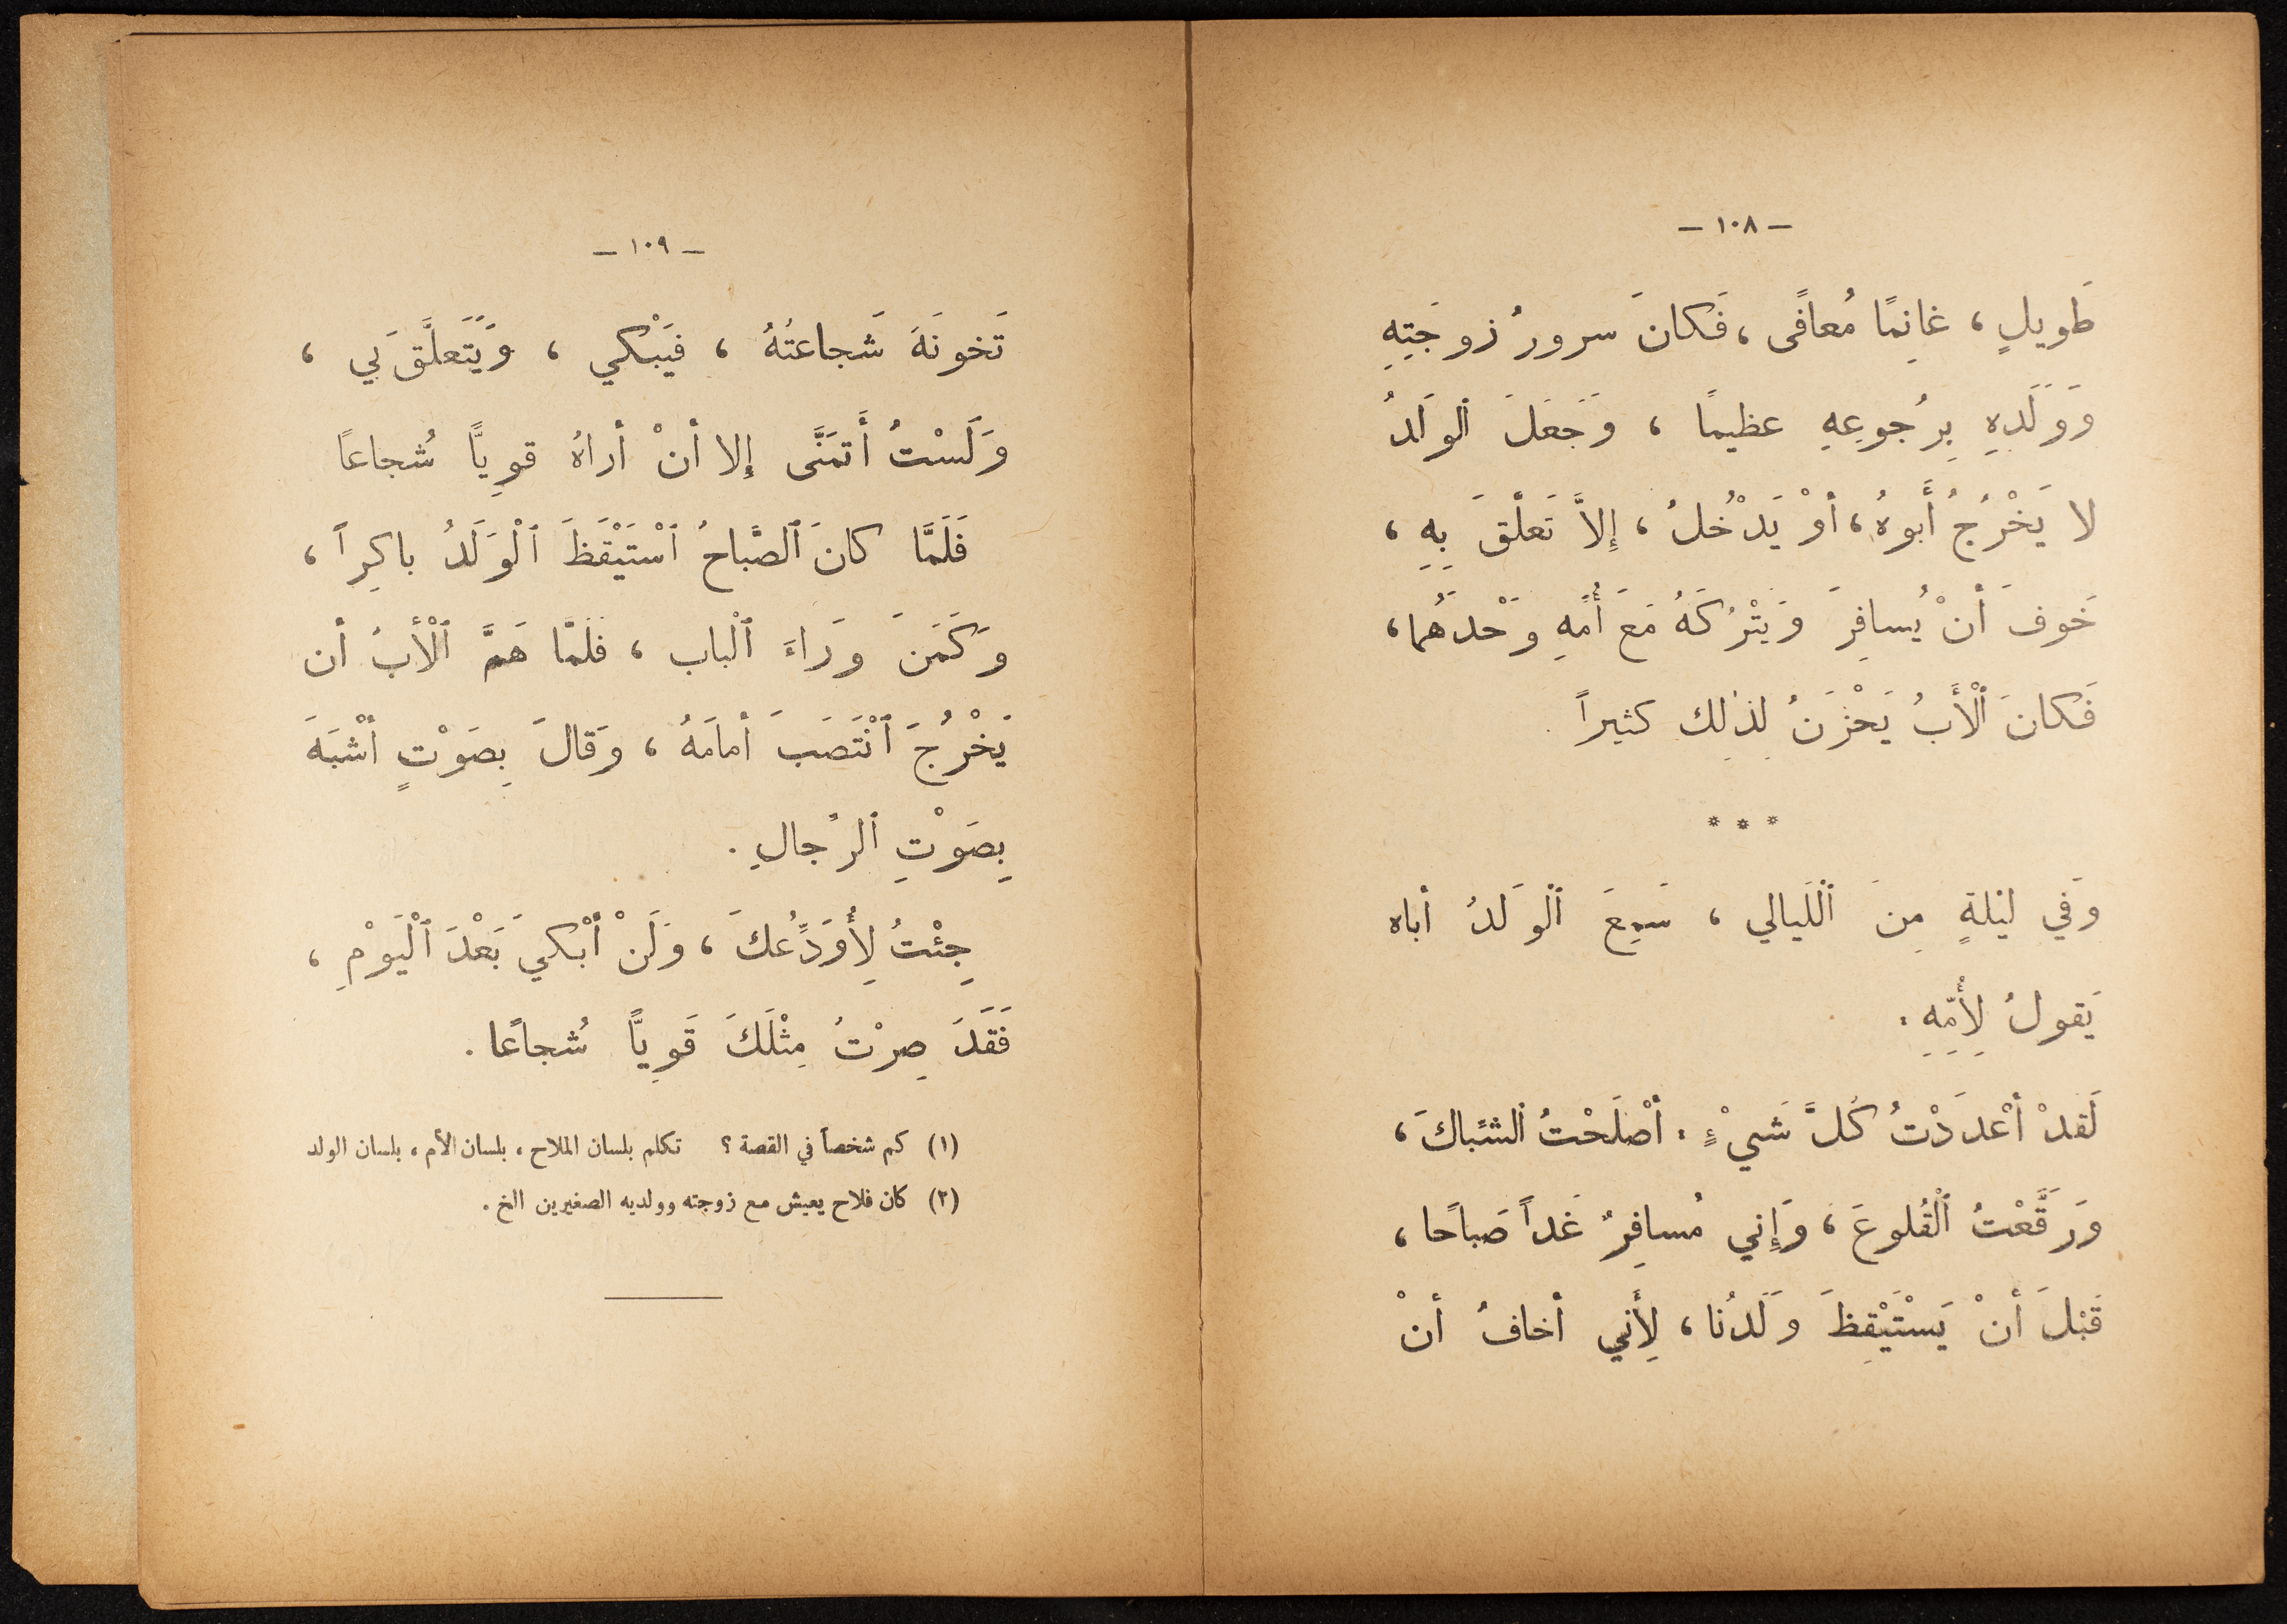 — ١٠٨ —
طَويلٍ ، غانِمًا مُعافًى ، فَكانَ سرورُ زوجَتِهِ
وَوَلَدِهِ بِرُجوعِهِ عظيمًا ، وَجَعَلَ ٱلوَلَدُ
لا يَخْرُجُ أَبوهُ ، أوْ يَدْخُلُ ، إِلاَّ تَعلَّقَ بِهِ ،
خَوفَ أنْ يُسافِرَ وَيَتْرُكَهُ مَعَ أُمِّهِ وَحْدَهُما ،
فَكانَ ٱلْأَبُ يَحْزَنُ لِذلِك كثيراً .
* * *
وَفي ليْلةٍ مِنَ ٱلْلَيالي ، سَمِعَ ٱلْوَلدُ أباه
يَقولُ لِأُمِّهِ :
لَقدْ أعْدَدْتُ كُلَّ شَيْءٍ : أصْلَحْتُ ٱلشِّباكَ ،
وَرَقَّعْتُ ٱلْقُلوعَ ، وَإِني مُسافِرٌ غَداً صَباحًا ،
قَبْلَ أنْ يَسْتَيْقِظَ وَلَدُنا ، لِأَني أخافُ أنْ
— ١٠٩ —
تَخونَهُ شَجاعَتُهُ ، فيَبْكي ، وَيَتَعلَّقَ بي ،
وَلَسْتُ أَتمَنَّى إلا أنْ أراهُ قوِيًّا شُجاعاً
فَلَمَّا كانَ ٱلصَّباحُ ٱسْتَيْقَظَ ٱلْوَلَدُ باكِراً ،
وَكَمَنَ وَراءَ ٱلْباب ، فَلَمَّا هَمَّ ٱلْأبُ أن
يَخْرُجَ ٱنْتَصَبَ أمامَهُ ، وَقالَ بِصَوْتٍ أشْبَهَ
بِصَوْتِ ٱلرِّجالِ .
جِئْتُ لِأُوَدِّعكَ ، وَلَنْ أبْكيَ بَعْدَ ٱلْيَوْمِ ،
فَقَدَ صِرْتُ مِثْلَكَ قَوِيًّا شُجاعًا .
(١) كم شخصاً في القصة ؟ تكلم بلسان الملاح ، بلسان الأم ، بلسان الولد
(٢) كان فلاح يعيش مع زوجته وولديه الصغيرين الخ .